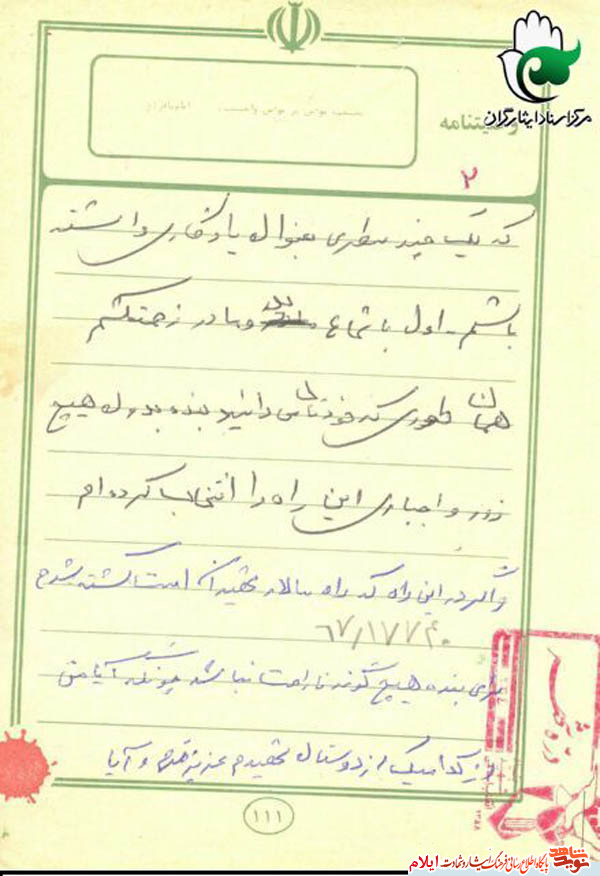 مرکز اسناد ایثارگران
وصیتنامه
۲
که یک چند سطری بعنوان یادگاری داشته
باشم. اول با شما پدر و مادر زحمتکشم
همان طوری که خودتان می دانید بنده بدون هیچ
زور و اجباری این راه را انتخاب کرده ام
و اگر در این راه که راه سالار شهیدان است کشته شدم
۶۷/۱۷۷۴۰
برای بنده هیچ گونه ناراحت نباشید چونکه آیا من
از کدامیک از دوستان شهیدم عزیزترم و آیا
۱۱۱
نوید شاهد
پایگاه اطلاع رسانی فرهنگ ایثار و شهادت ایلام